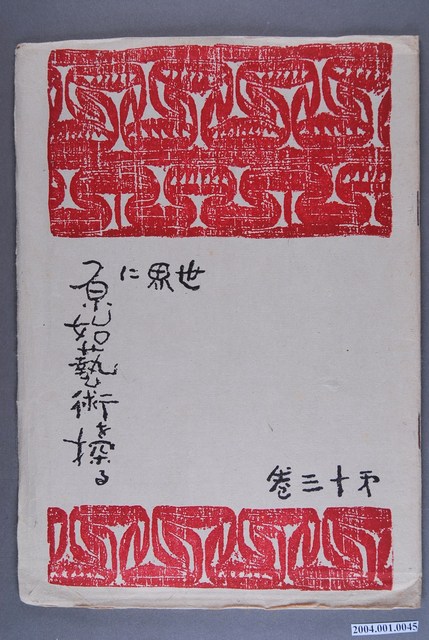 世界に
原始芸術を探る
第十三巻
2004.001.0045